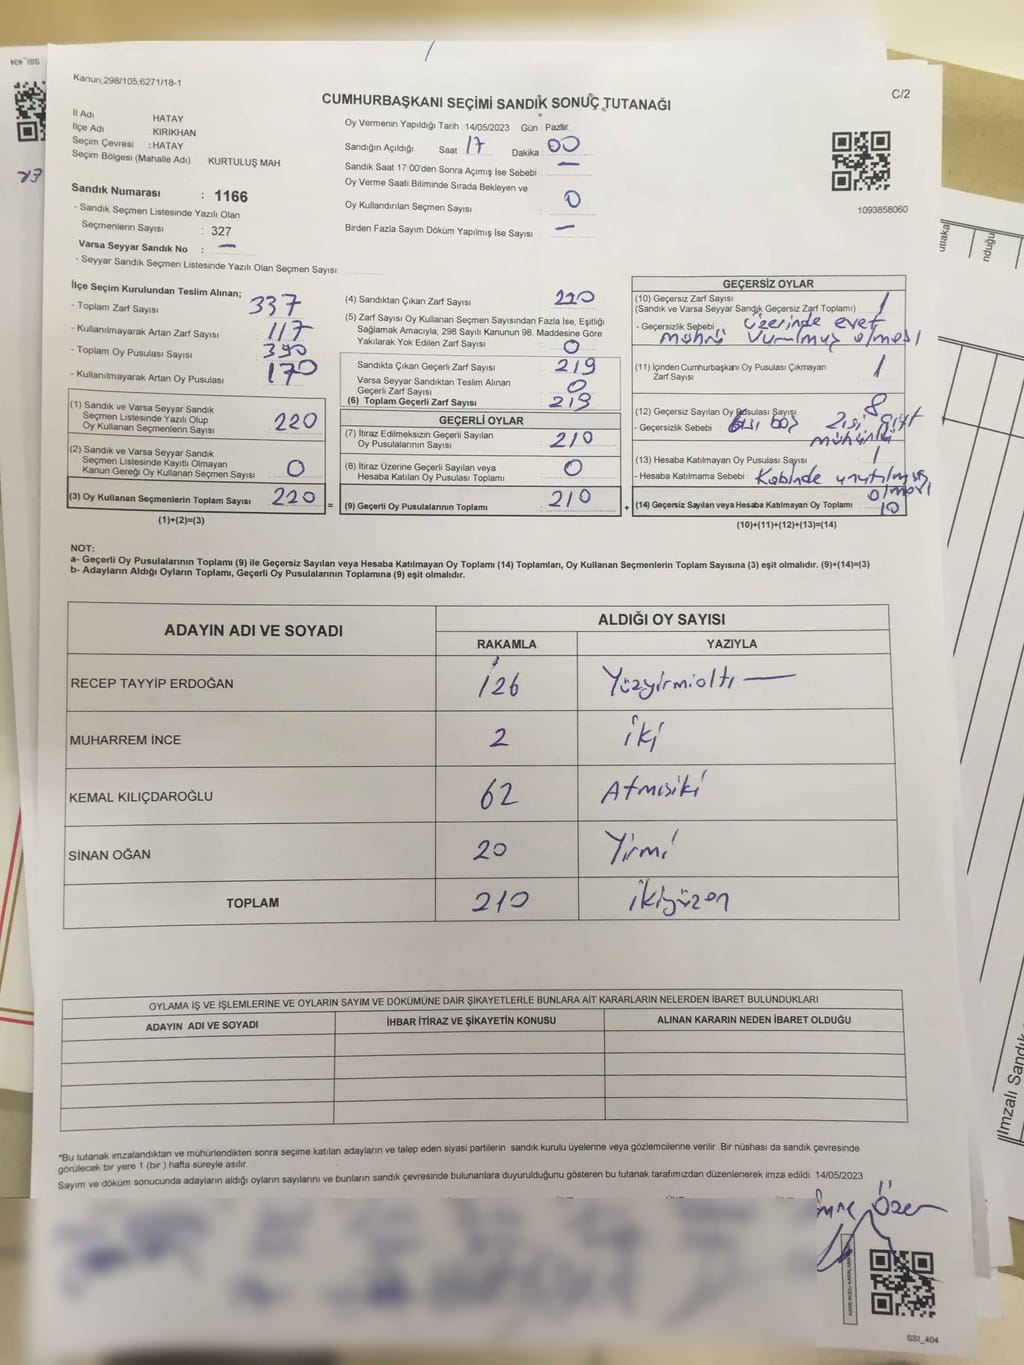 Kanun,298/105,6271/18-1
C/2
CUMHURBAŞKANI SEÇİMİ SANDIK SONUÇ TUTANAĞI
İl Adı HATAY
İlçe Adı KIRIKHAN
Seçim Çevresi : HATAY
Seçim Bölgesi (Mahalle Adı) KURTULUŞ MAH
Sandık Numarası : 1166
- Sandık Seçmen Listesinde Yazılı Olan
Seçmenlerin Sayısı : 327
Varsa Seyyar Sandık No : —
- Seyyar Sandık Seçmen Listesinde Yazılı Olan Seçmen Sayısı:
Oy Vermenin Yapıldığı Tarih : 14/05/2023 Gün : Pazar
Sandığın Açıldığı Saat : 17 Dakika : 00
Sandık Saat 17:00'den Sonra Açılmış İse Sebebi : —
Oy Verme Saati Bitiminde Sırada Bekleyen ve
Oy Kullandırılan Seçmen Sayısı : 0
Birden Fazla Sayım Döküm Yapılmış İse Sayısı : —
1093858060
İlçe Seçim Kurulundan Teslim Alınan;
- Toplam Zarf Sayısı 337
- Kullanılmayarak Artan Zarf Sayısı 117
- Toplam Oy Pusulası Sayısı 390
- Kullanılmayarak Artan Oy Pusulası 170
(1) Sandık ve Varsa Seyyar Sandık
Seçmen Listesinde Yazılı Olup
Oy Kullanan Seçmenlerin Sayısı : 220
(2) Sandık ve Varsa Seyyar Sandık
Seçmen Listesinde Kayıtlı Olmayan
Kanun Gereği Oy Kullanan Seçmen Sayısı : 0
(3) Oy Kullanan Seçmenlerin Toplam Sayısı : 220
(1)+(2)=(3)
=
(4) Sandıktan Çıkan Zarf Sayısı : 220
(5) Zarf Sayısı Oy Kullanan Seçmen Sayısından Fazla İse, Eşitliği
Sağlamak Amacıyla; 298 Sayılı Kanunun 98. Maddesine Göre
Yakılarak Yok Edilen Zarf Sayısı : 0
Sandıkta Çıkan Geçerli Zarf Sayısı : 219
Varsa Seyyar Sandıktan Teslim Alınan
Geçerli Zarf Sayısı : 0
(6) Toplam Geçerli Zarf Sayısı : 219
GEÇERLİ OYLAR
(7) İtiraz Edilmeksizin Geçerli Sayılan
Oy Pusulalarının Sayısı : 210
(8) İtiraz Üzerine Geçerli Sayılan veya
Hesaba Katılan Oy Pusulası Toplamı : 0
(9) Geçerli Oy Pusulalarının Toplamı : 210
+
GEÇERSİZ OYLAR
(10) Geçersiz Zarf Sayısı 1
(Sandık ve Varsa Seyyar Sandık Geçersiz Zarf Toplamı) :
- Geçersizlik Sebebi : üzerinde evet
mührü vurulmuş olması
(11) İçinden Cumhurbaşkanı Oy Pusulası Çıkmayan
Zarf Sayısı : 1
(12) Geçersiz Sayılan Oy Pusulası Sayısı : 8
- Geçersizlik Sebebi : 6sı boş 2isi çift
mühürlü
(13) Hesaba Katılmayan Oy Pusulası Sayısı : 1
- Hesaba Katılmama Sebebi : Kabinde unutulmuş
olması
(14) Geçersiz Sayılan veya Hesaba Katılmayan Oy Toplamı : 10
(10)+(11)+(12)+(13)=(14)
NOT:
a- Geçerli Oy Pusulalarının Toplamı (9) ile Geçersiz Sayılan veya Hesaba Katılmayan Oy Toplamı (14) Toplamları, Oy Kullanan Seçmenlerin Toplam Sayısına (3) eşit olmalıdır. (9)+(14)=(3)
b- Adayların Aldığı Oyların Toplamı, Geçerli Oy Pusulalarının Toplamına (9) eşit olmalıdır.
ADAYIN ADI VE SOYADI ALDIĞI OY SAYISI
RAKAMLA YAZIYLA
RECEP TAYYİP ERDOĞAN 126 Yüzyirmialtı —
MUHARREM İNCE 2 iki
KEMAL KILIÇDAROĞLU 62 Atmışiki
SİNAN OĞAN 20 Yirmi
TOPLAM 210 ikiyüzon
OYLAMA İŞ VE İŞLEMLERİNE VE OYLARIN SAYIM VE DÖKÜMÜNE DAİR ŞİKAYETLERLE BUNLARA AİT KARARLARIN NELERDEN İBARET BULUNDUKLARI
ADAYIN ADI VE SOYADI İHBAR İTİRAZ VE ŞİKAYETİN KONUSU ALINAN KARARIN NEDEN İBARET OLDUĞU
*Bu tutanak imzalandıktan ve mühürlendikten sonra seçime katılan adayların ve talep eden siyasi partilerin sandık kurulu üyelerine veya gözlemcilerine verilir. Bir nüshası da sandık çevresinde
görülecek bir yere 1 (bir) hafta süreyle asılır.
Sayım ve döküm sonucunda adayların aldığı oyların sayılarını ve bunların sandık çevresinde bulunanlara duyurulduğunu gösteren bu tutanak tarafımızdan düzenlenerek imza edildi. 14/05/2023
Emre Özer
SSI_404
SSI_404
İmzalı Sandık